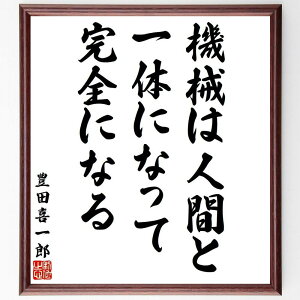 機械は人間と
一体になって
完全になる
豊田喜一郎